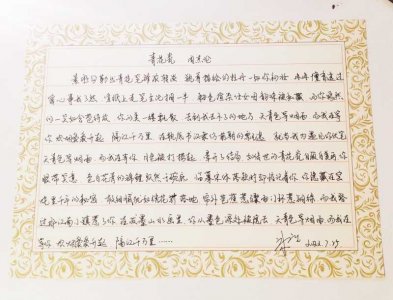 青花瓷 周杰伦
素胚勾勒出青花笔锋浓转淡 瓶身描绘的牡丹一如你初妆 冉冉檀香透过
窗心事我了然 宣纸上走笔至此搁一半 釉色渲染仕女图韵味被私藏 而你嫣然
的一笑如含苞待放 你的美一缕飘散 去到我去不了的地方 天青色等烟雨 而我在等
你 炊烟袅袅升起 隔江千万里 在瓶底书汉隶仿前朝的飘逸 就当我为遇见你伏笔
天青色等烟雨 而我在等你 月色被打捞起 晕开了结局 如传世的青花瓷自顾自美丽 你
眼带笑意 色白花青的锦鲤跃然于碗底 临摹宋体落款时却惦记着你 你隐藏在窑
烧里千年的秘密 极细腻犹如绣花针落地 帘外芭蕉惹骤雨门环惹铜绿 而我路
过那江南小镇惹了你 在泼墨山水画里 你从墨色深处被隐去 天青色等烟雨 而我在
等你 炊烟袅袅升起 隔江千万里……